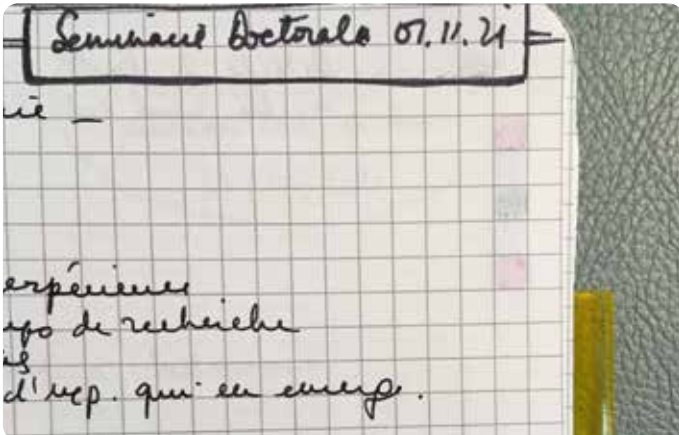 Séminaire Doctorale 01.11.21
expérience
de recherche
d'exp. qui en émerge.